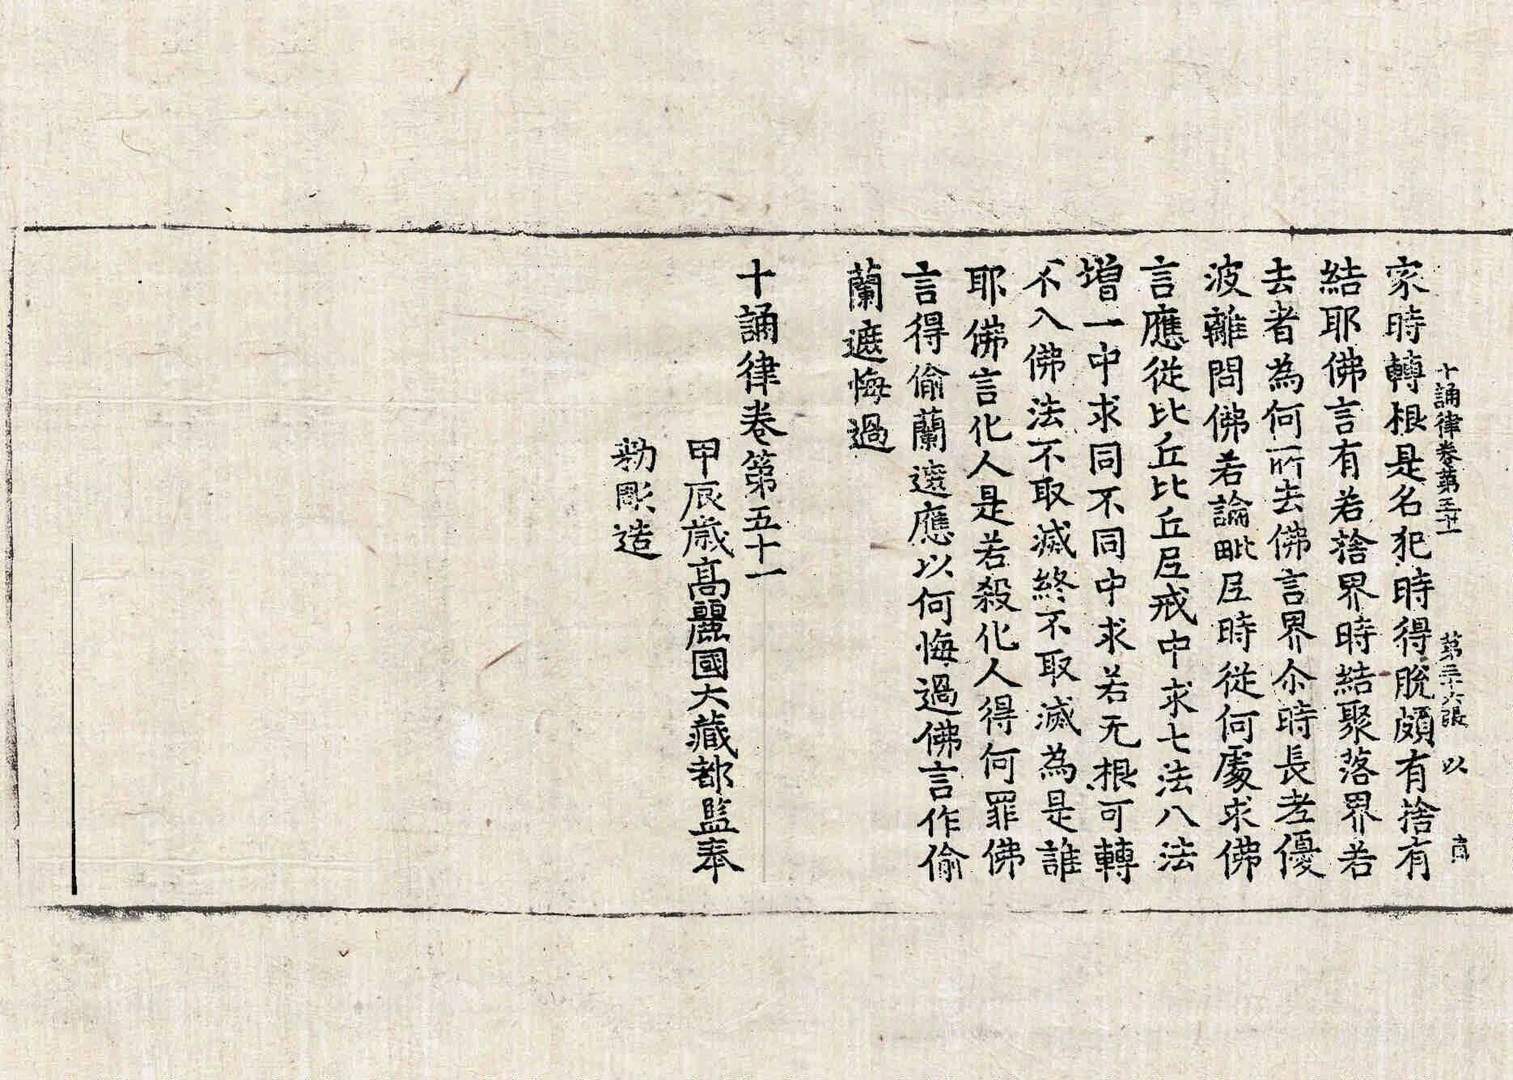 十誦律卷第五十一 第二十六張 以
家時轉根是名犯時得脫頗有捨有
結耶佛言有若捨界時結聚落界若
去者為何所去佛言界尒時長老優
波離問佛若論毗尼時從何處求佛
言應從比丘比丘尼戒中求七法八法
增一中求同不同中求若无根可轉
不入佛法不取滅終不取滅為是誰
耶佛言化人是若殺化人得何罪佛
言得偷蘭遮應以何悔過佛言作偷
蘭遮悔過
十誦律卷第五十一
甲辰歲高麗國大藏都監奉
勑彫造